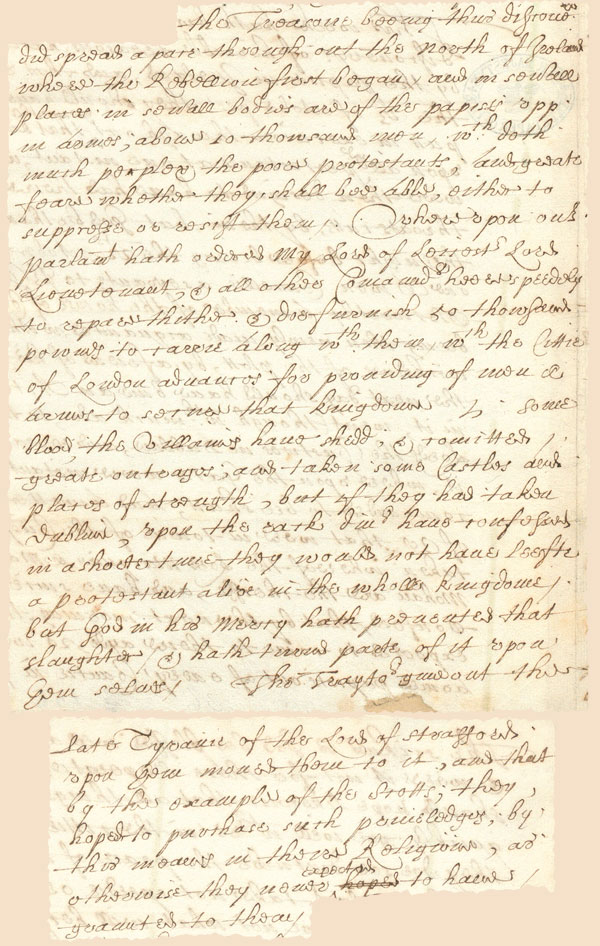 the Treason beeing thus discoūd
did spread a pace through out the north of Ireland
where the Rebellion first began and in seūall
places in seūall bodies are of the papists vpp
in Armes, aboue 10 thowsand men, wch doth
much perplex the poore protestants, and greate
feare whether they shall bee able, either to
suppresse or resist them /. Where vpon our
parlamt hath ordered My Lord of Leicestr Lord
Lieuetenant, & all other Comaundrs heere speedely
to repaire thither & doe furnish 50 thowsand
pownds to carrie along wth them, wch the Cittie
of London aduances for prouiding of men &
Armes to secure that kingdome / some
blood, the Villains have shedd, & comitted
greate outrages, and taken some Castles and
places of strength, but if they had taken
Dublin, vpon the rack diūs have confessed
in a shorte time they would not have leefte
a protestant alive in the wholle kingdome /.
but God in his Mercy hath preuented that
slaughter / & hath turnd parte of it vpon
them selues / The Traytors giue out the
late Tyranie of the Lord of Strafford
vpon them moues them to it, and that
by the example of the Scotts, they
hoped to purchase such priuiledges, by
this meanes in theire Religion, as
otherwise they neuer expected hoped to haue
graunted to them /